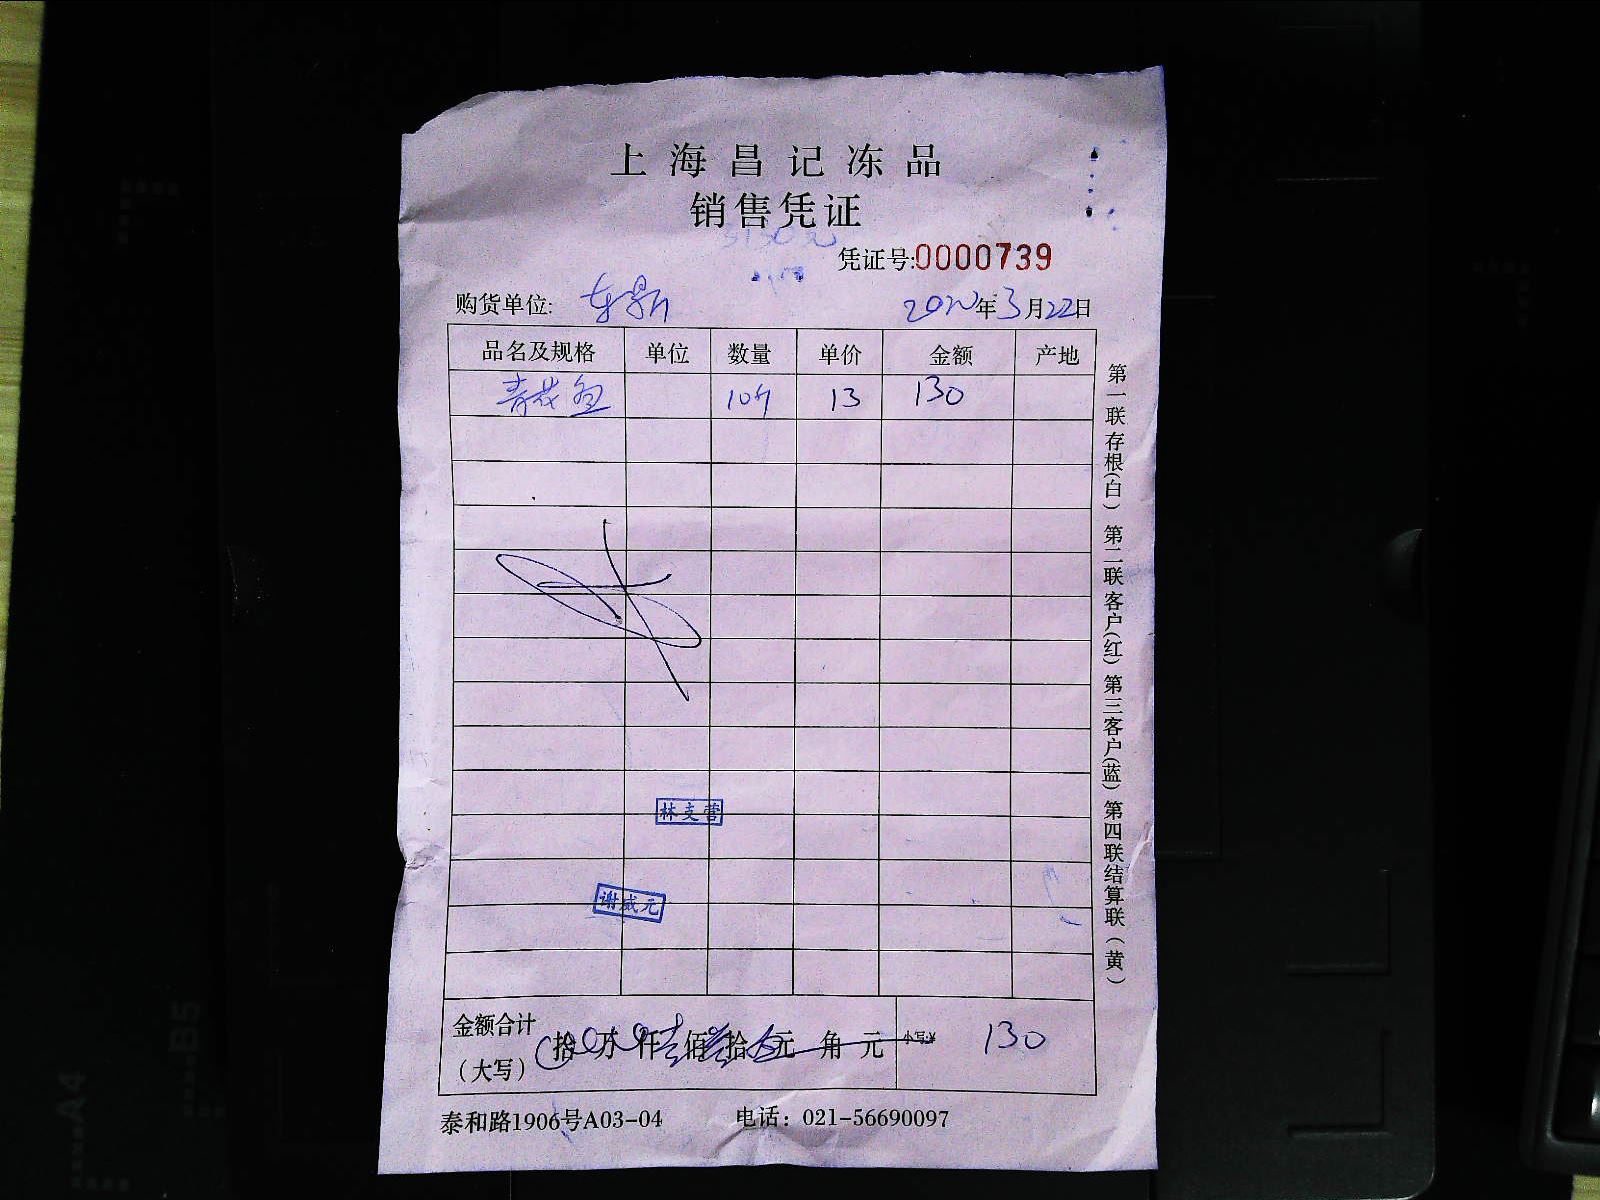 上海昌记冻品
销售凭证
凭证号:0000739
购货单位: 年3月22日
品名及规格 单位 数量 单价 金额 产地
青花鱼 10斤 13 130
林支营
谢威元
金额合计（大写） 拾 万 仟壹佰叁拾 元 角 元 小写:¥ 130
泰和路1906号A03-04 电话：021-56690097
第一联存根(白) 第二联客户(红) 第三客户(蓝) 第四联结算联(黄)